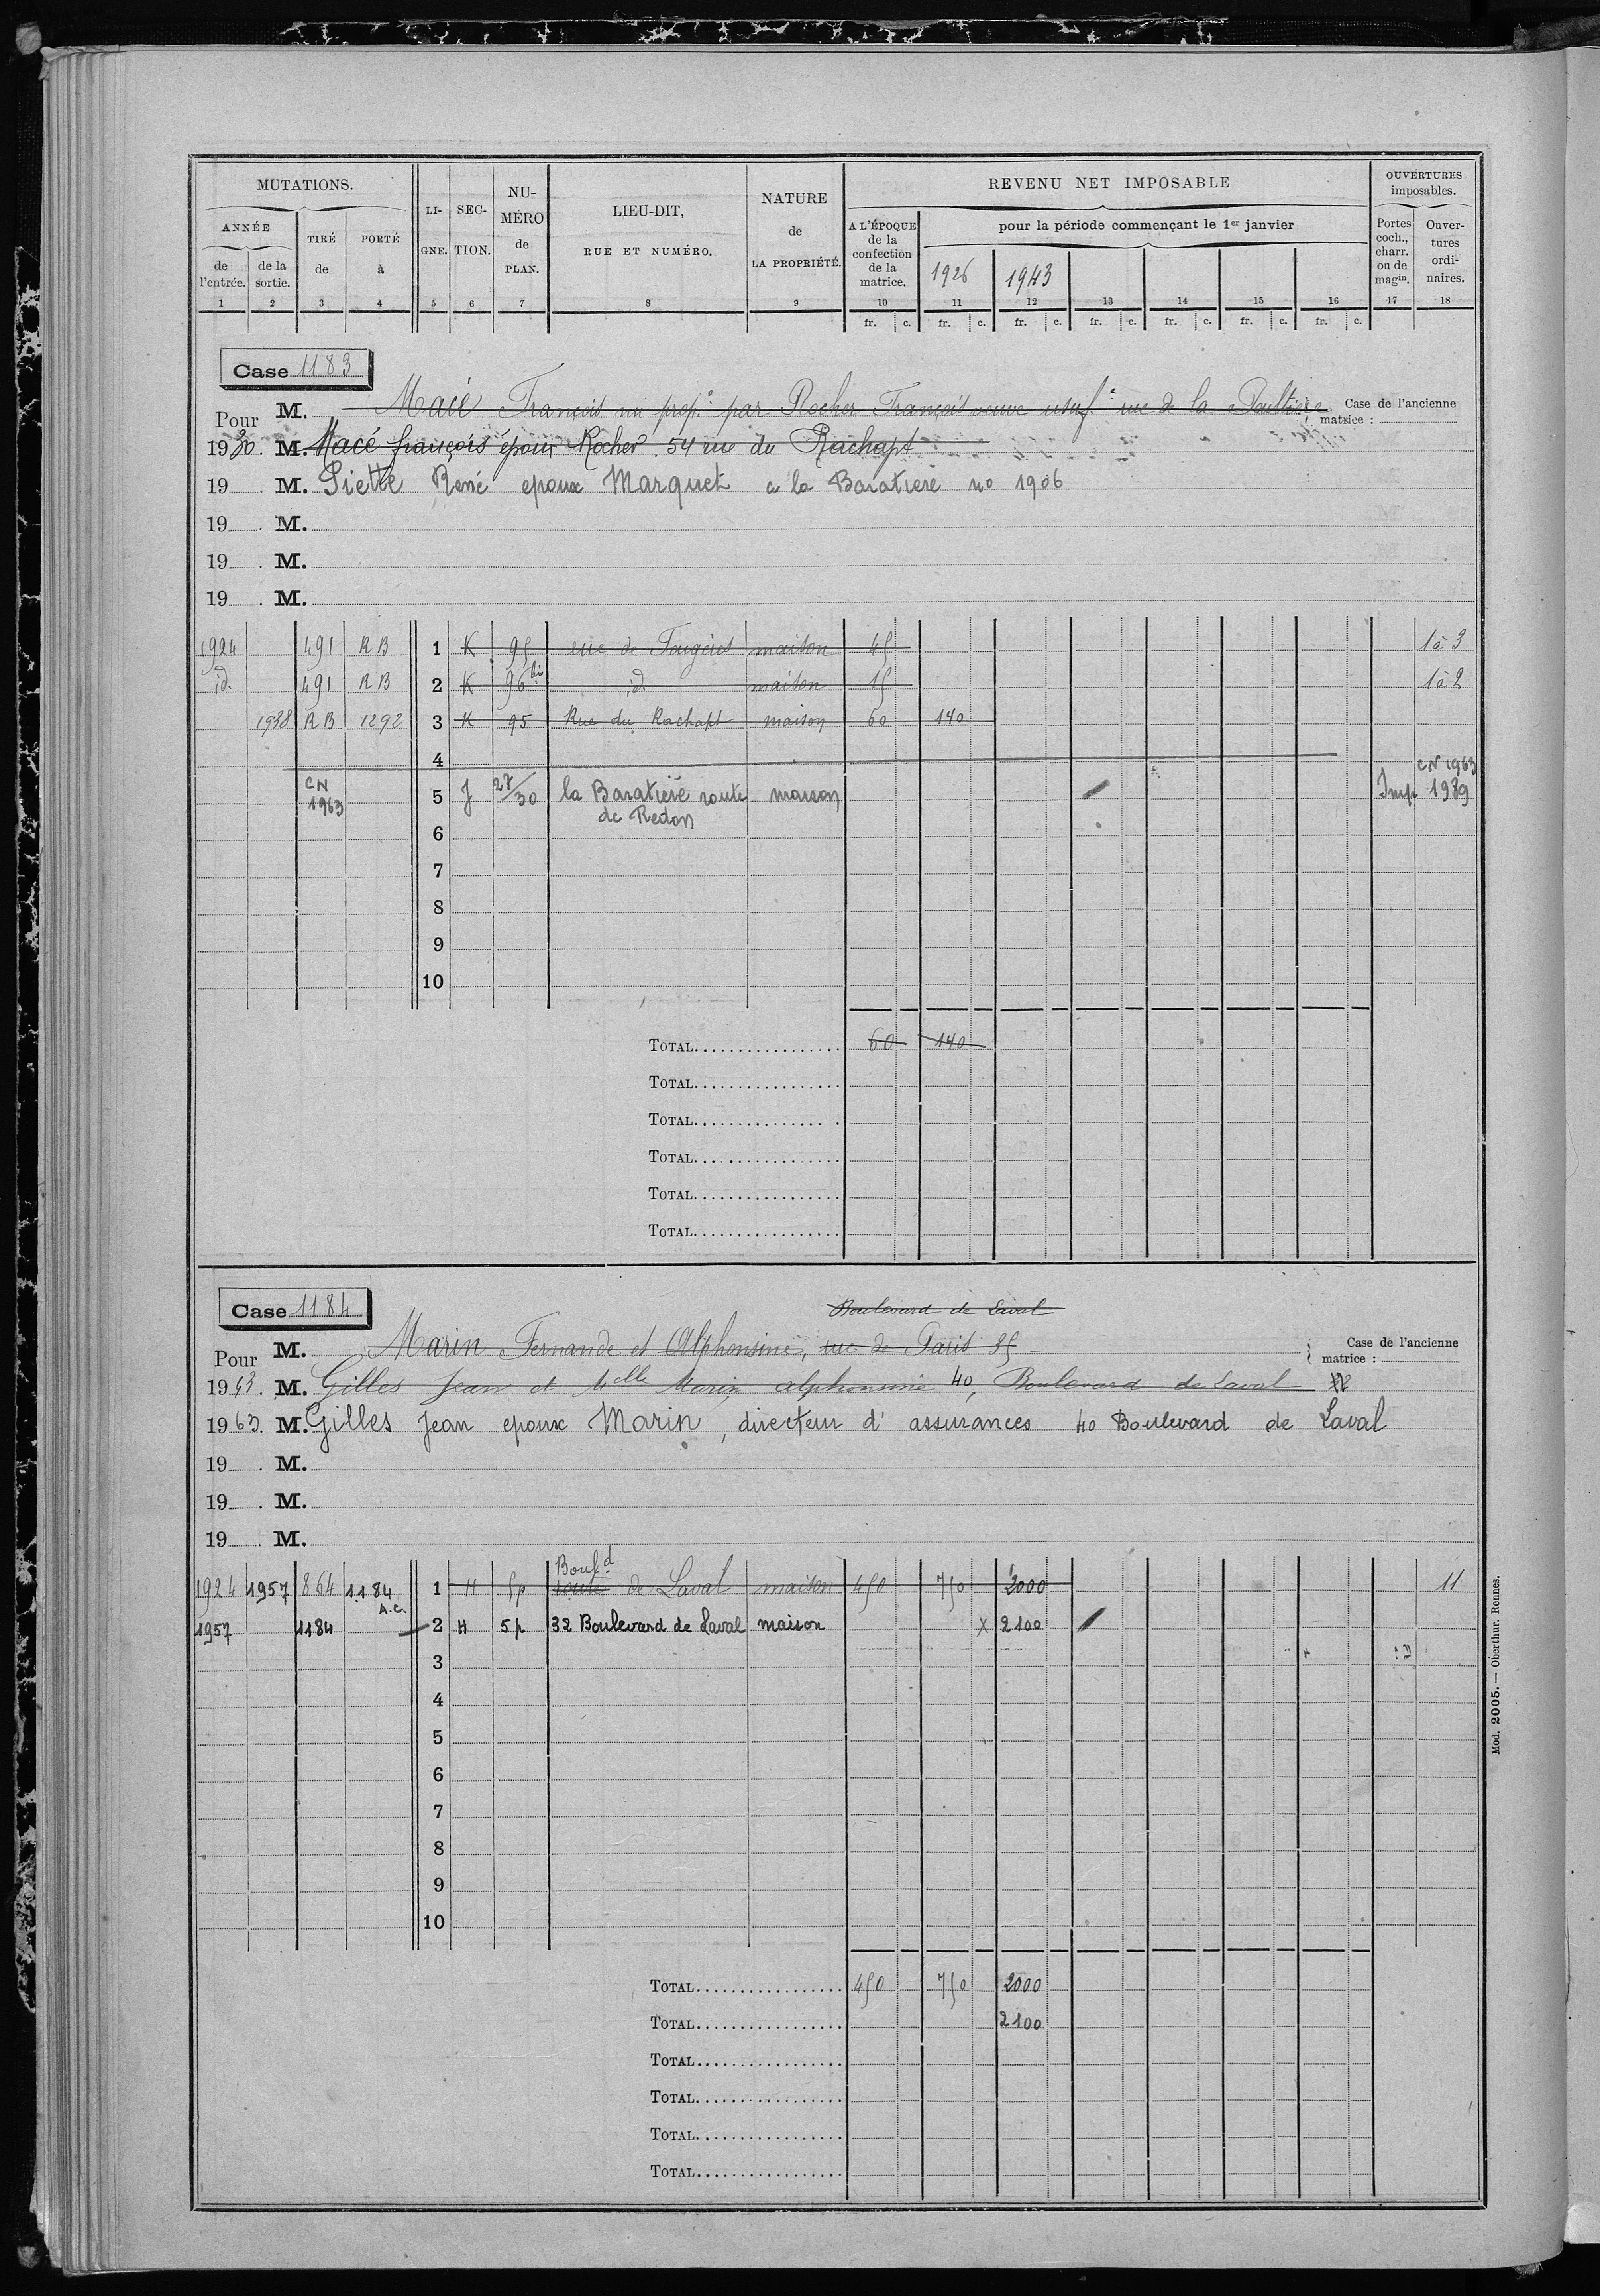 MUTATIONS.
ANNÉE
de l'entrée.
de la sortie.
TIRÉ de
PORTÉ à
LI-GNE.
SEC-TION.
NU-MÉRO de PLAN.
LIEU-DIT, RUE ET NUMÉRO.
NATURE de LA PROPRIÉTÉ.
REVENU NET IMPOSABLE
A L'ÉPOQUE de la confection de la matrice.
pour la période commençant le 1er janvier
1926 1943
OUVERTURES imposables.
Portes coch., charr. ou de magin.
Ouver-tures ordi-naires.
1 2 3 4 5 6 7 8 9 10 11 12 13 14 15 16 17 18
fr. c. fr. c. fr. c. fr. c. fr. c. fr. c. fr. c.
Case 1183
Pour M. Macé François nu prop. par Rocher François veuve usuf. rue de la
Case de l'ancienne matrice :
1930. M. Macé françois époux Rocher 54 rue du Rachapt
19 . M. Piette René epoux Marquet a la Baratiere no 1906
19 . M.
19 . M.
19 . M.
1924 491 RB 1 K 95 rue de Fougères maison 45 1 à 3
id. 491 RB 2 K 96 bis id maison 15 1 à 2
1938 RB 1292 3 K 95 Rue du Rachapt maison 60 140
4 CN 1963
CN 1963 5 J 27/30 la Baratiere route de Redon maison Imp 1989
6
7
8
9
10
TOTAL 60 140
TOTAL
TOTAL
TOTAL
TOTAL
TOTAL
Case 1184
Boulevard de Laval
Pour M. Marin Fernande et Alphonsine, rue de Paris 85
Case de l'ancienne matrice :
1943. M. Gilles Jean et Melle Marin alphonsine 40, Boulevard de Laval
1963. M. Gilles Jean epoux Marin, directeur d'assurances 40 Boulevard de Laval
19 . M.
19 . M.
19 . M.
1924 1957 864 1184 A.C. 1 H 5p Boul.d route de Laval maison 450 750 2000 11
1957 1184 2 H 5p 32 Boulevard de Laval maison X 2100
3
4
5
6
7
8
9
10
TOTAL 450 750 2000
TOTAL 2100
TOTAL
TOTAL
TOTAL
TOTAL
Mod. 2005. — Oberthur. Rennes.